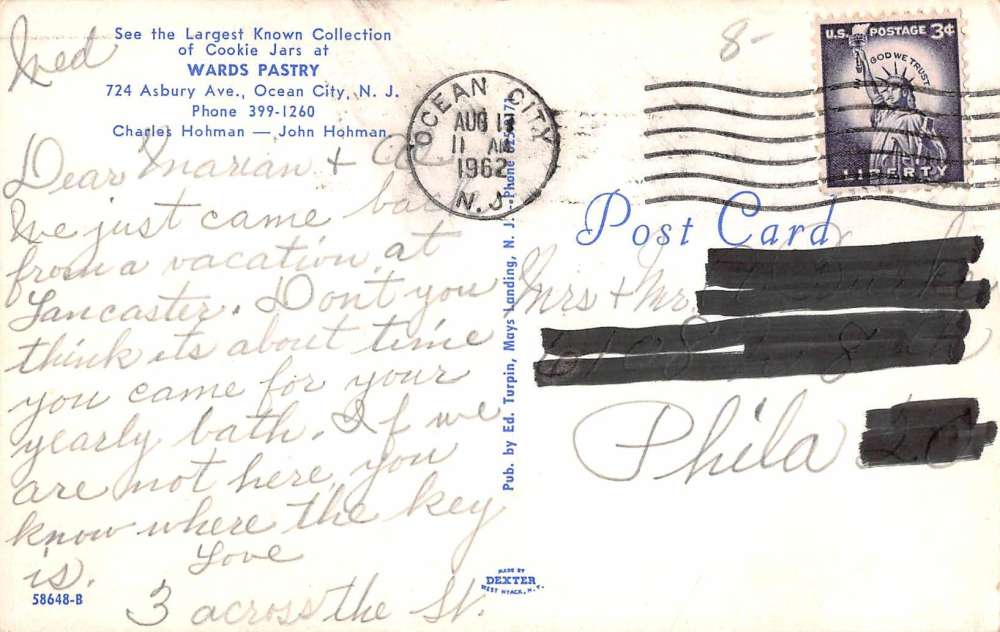 Wed
See the Largest Known Collection
of Cookie Jars at
WARDS PASTRY
724 Asbury Ave., Ocean City, N. J.
Phone 399-1260
Charles Hohman — John Hohman
Dear Marian +
We just came back
from a vacation at
Lancaster. Don't you
think its about time
you came for your
yearly bath. If we
are not here, you
know where the key
is.
Love
3 across the St.
58648-B
Pub. by Ed. Turpin, Mays Landing, N. J.
MADE BY
DEXTER
WEST NYACK, N.Y.
OCEAN CITY
AUG
11 AM
1962
N. J.
8-
U.S. POSTAGE 3¢
IN GOD WE TRUST
LIBERTY
Post Card
Mrs + Mr.
Phila